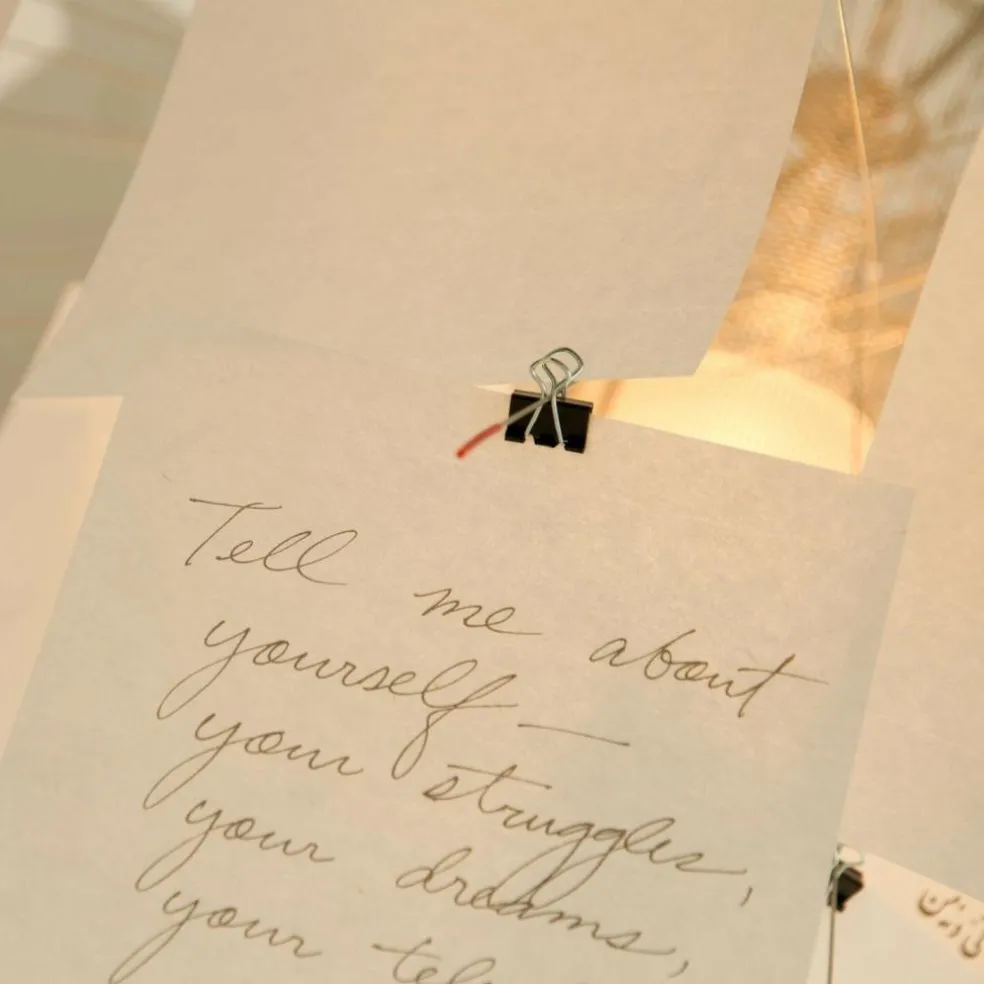 Tell me about
yourself —
your struggles,
your dreams,
your